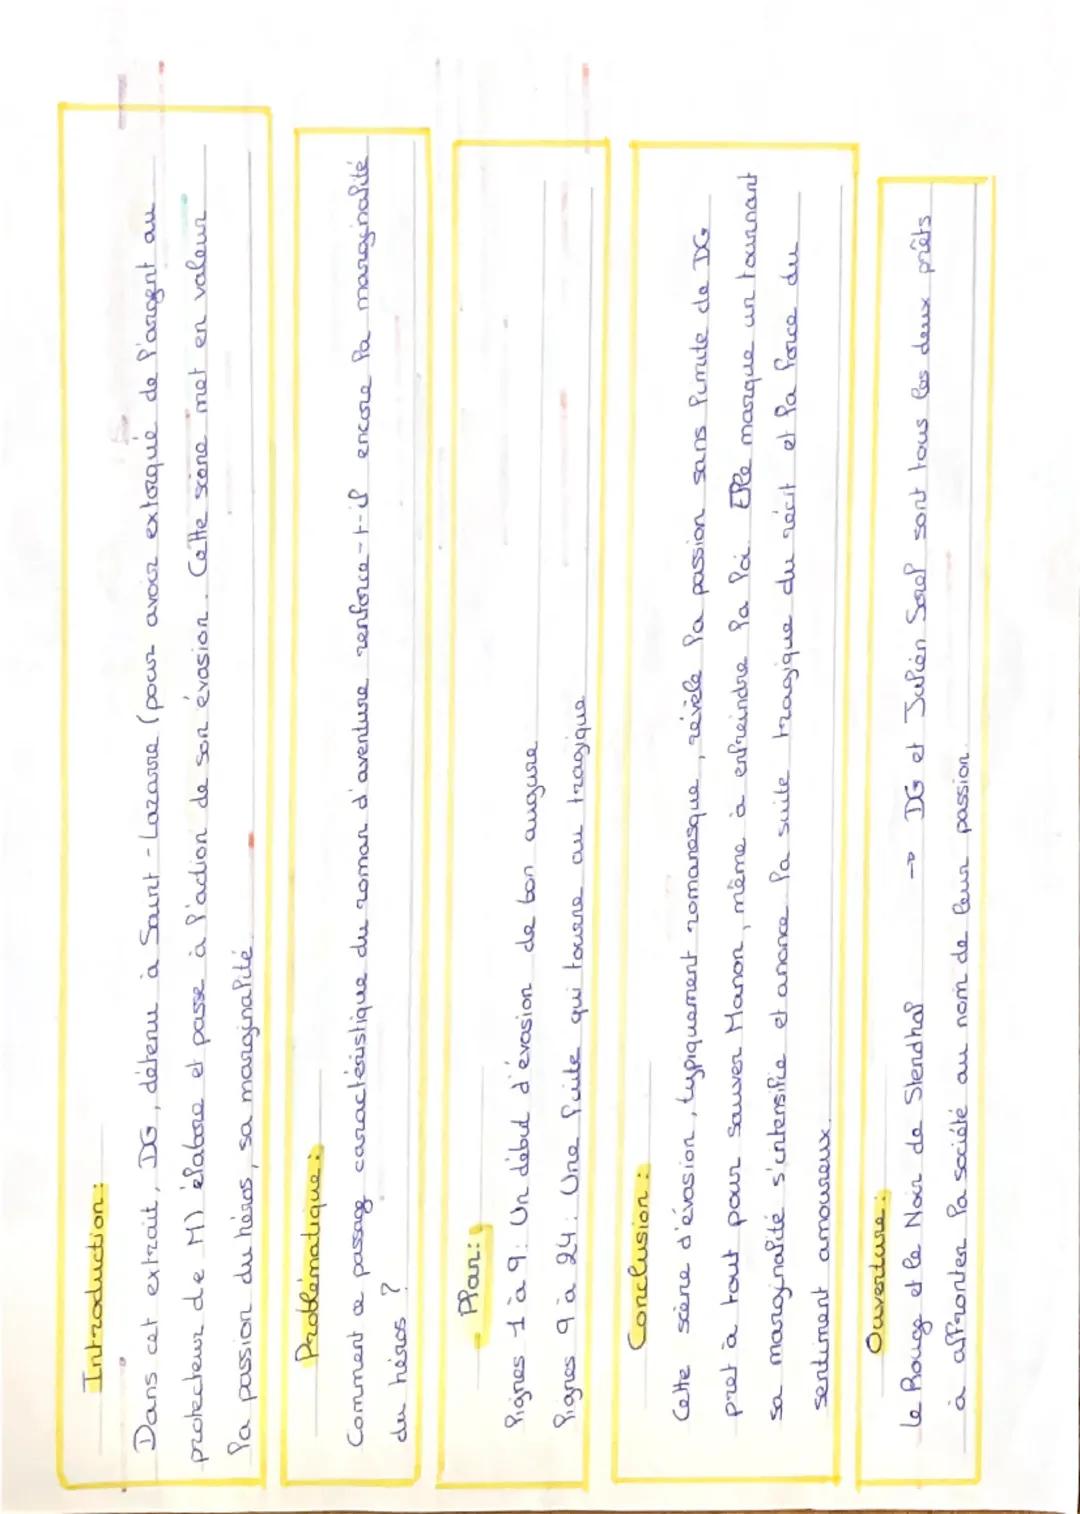 Introduction :
Dans cet extrait, DG, détenu à Saint-Lazarre (pour avoir extorqué de l'argent au
protecteur de M) élabore et passe à l'action de son évasion. Cette scène met en valeur
la passion du héros, sa marginalité.
Problématique :
Comment ce passage caractéristique du roman d'aventure renforce-t-il encore la marginalité
du héros ?
Plan :
lignes 1 à 9 : Un début d'évasion de bon augure
lignes 9 à 24 : Une fuite qui tourne au tragique
Conclusion :
Cette scène d'évasion, typiquement romanesque, révèle la passion sans limite de DG
pret à tout pour sauver Manon, même à enfreindre la loi. Elle marque un tournant
sa marginalité s'intensifie et anonce la suite tragique du récit et la force du
sentiment amoureux.
Ouverture :
le Rouge et le Noir de Stendhal → DG et Julien Sorel sont tous les deux prêts
à affronter la société au nom de leur passion.